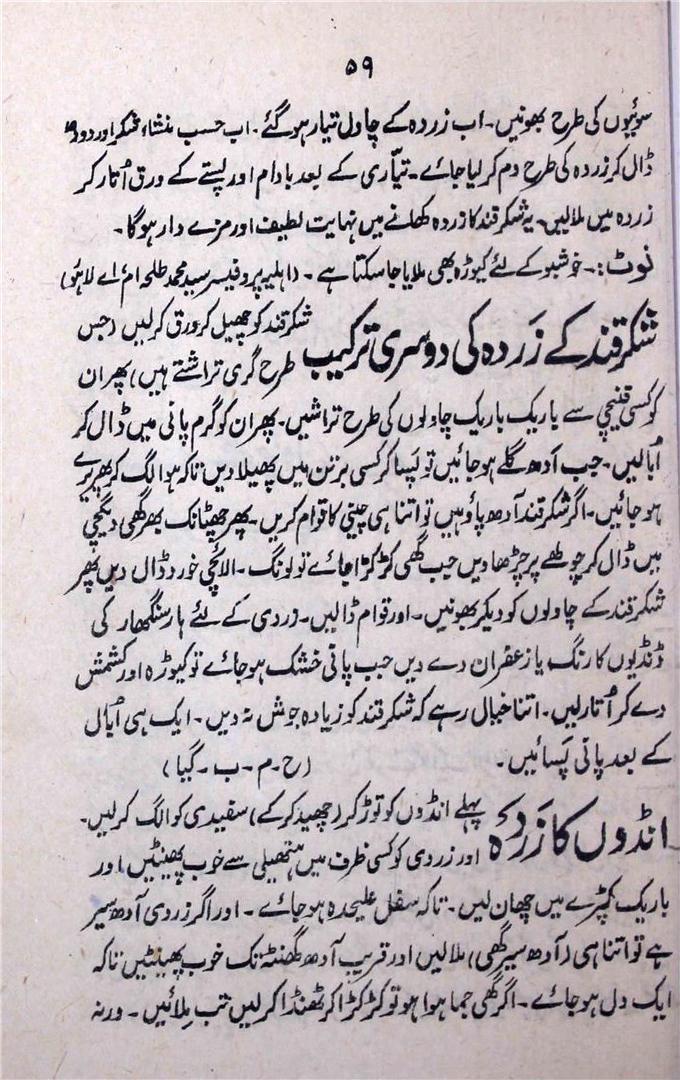 ۵۹
سوئیوں کی طرح بھونیں۔ اب زردہ کے چاول تیار ہو گئے۔ اب حسب منشاء شکر اور دودھ
ڈال کر زردہ کی طرح دم کر لیا جائے۔ تیّاری کے بعد بادام اور پستے کے ورق اُتار کر
زردہ میں ملالیں۔ یہ شکرقند کا زردہ کھانے میں نہایت لطیف اور مزے دار ہوگا۔
نوٹ:۔ خوشبو کے لئے کیوڑہ بھی ملایا جا سکتا ہے۔ (اہلیہ پروفیسر سید محمد طلحہ ام اے لاہور)
شکرقند کے زَردہ کی دوسری ترکیب
شکرقند کو چھیل کر ورق کرلیں (جس
طرح گری تراشتے ہیں) پھر ان
کو کسی قینچی سے باریک باریک چاولوں کی طرح تراشیں۔ پھر ان کو گرم پانی میں ڈال کر
اُبالیں۔ جب اَدھ گلے ہو جائیں تو پَسا کر کسی برتن میں پھیلا دیں تاکہ ہوا لگ کر پھریرے
ہو جائیں۔ اگر شکرقند آدھ پاؤ ہیں تو اتنا ہی چینی کا قوام کریں۔ پھر چھٹانک بھر گھی دیگچی
میں ڈال کر چولھے پر چڑھا دیں جب گھی کڑکڑا جائے تو لونگ۔ الائچی خورد ڈال دیں پھر
شکرقند کے چاولوں کو دیکر بھونیں۔ اور قوام ڈالیں۔ زردی کے لئے ہارسنگھار کی
ڈنڈیوں کا رنگ یا زعفران دے دیں جب پانی خشک ہو جائے تو کیوڑہ اور کشمش
دے کر اُتارلیں۔ اتنا خیال رہے کہ شکرقند کو زیادہ جوش نہ دیں۔ ایک ہی اُبال
کے بعد پانی پَسائیں۔ (ح۔م۔ب۔گیا)
انڈوں کا زَردہ
پہلے انڈوں کو توڑ کر (چھید کرکے) سفیدی کو الگ کرلیں۔
اور زردی کو کسی ظرف میں ہتھیلی سے خوب پھینٹیں اور
باریک کپڑے میں چھان لیں۔ تاکہ سفل علیحدہ ہو جائے۔ اور اگر زردی آدھ سیر
ہے تو اتنا ہی (آدھ سیر گھی) ملالیں اور قریب آدھ گھنٹہ تک خوب پھینٹیں تاکہ
ایک دل ہو جائے۔ اگر گھی جما ہوا ہو تو کڑکڑا کر ٹھنڈا کرلیں تب ملائیں۔ ورنہ